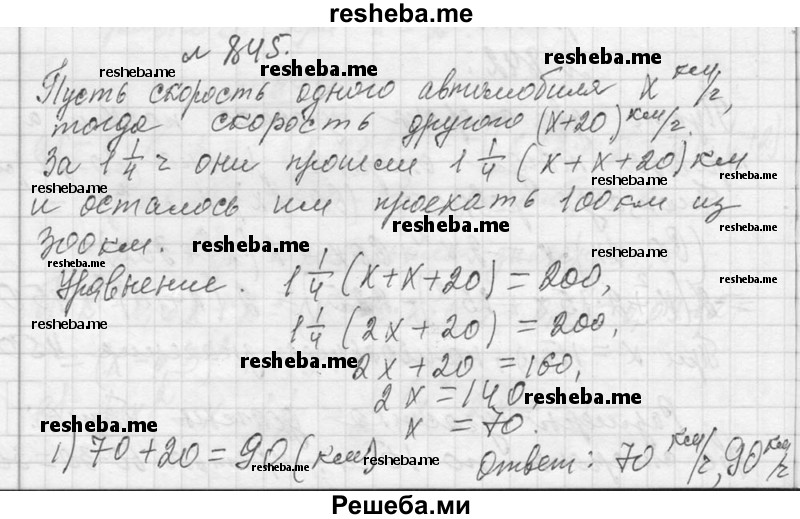 resheba.me
№ 845.
resheba.me resheba.me resheba.me
Пусть скорость одного автомобиля x км/ч,
тогда скорость другого (x+20) км/ч.
За 1 1/4 ч они прошли 1 1/4 (x+x+20) км
resheba.me resheba.me resheba.me
и осталось им проехать 100 км из
300 км. resheba.me resheba.me
resheba.me resheba.me resheba.me
Уравнение. 1 1/4 (x+x+20) = 200,
resheba.me 1 1/4 (2x+20) = 200,
resheba.me 2x+20 = 160,
2x = 140, resheba.me
resheba.me x = 70.
1) 70+20 = 90 (км) Ответ: 70 км/ч, 90 км/ч
resheba.me resheba.me resheba.me
Решеба.ми